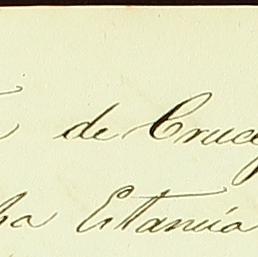 de Cruce
ha Estancia